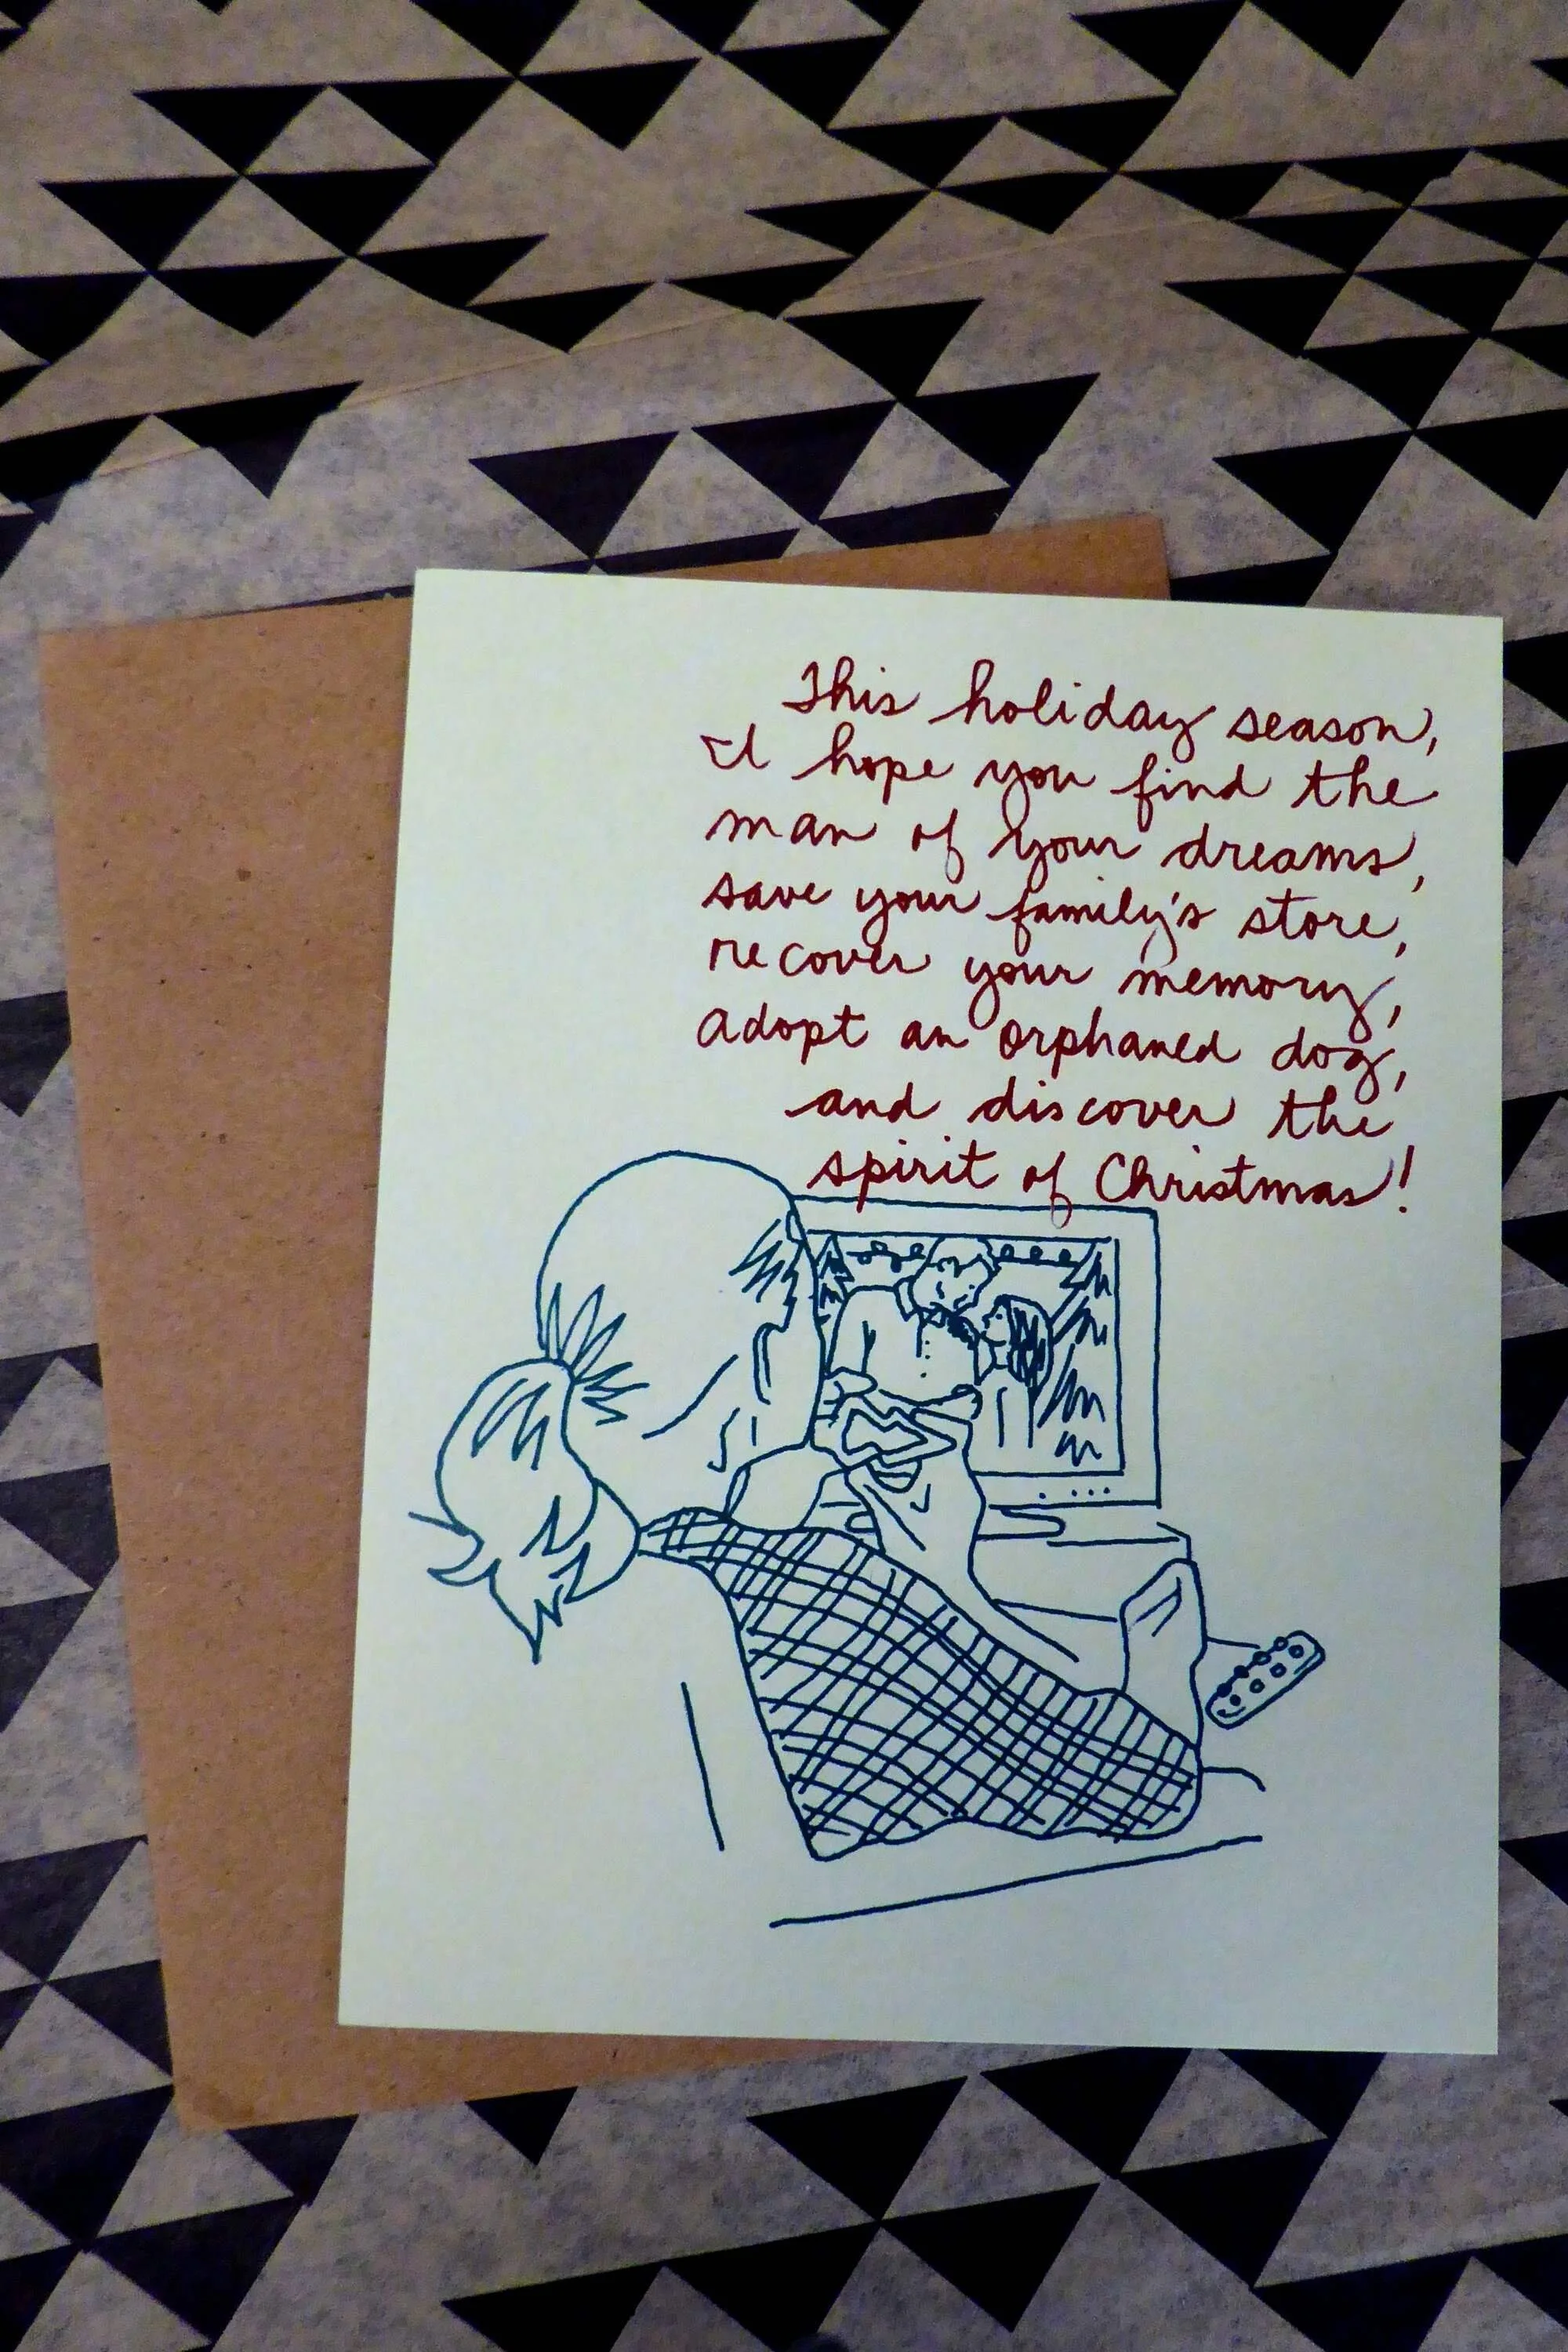 This holiday season,
I hope you find the
man of your dreams,
save your family's store,
recover your memory,
adopt an orphaned dog,
and discover the
spirit of Christmas!